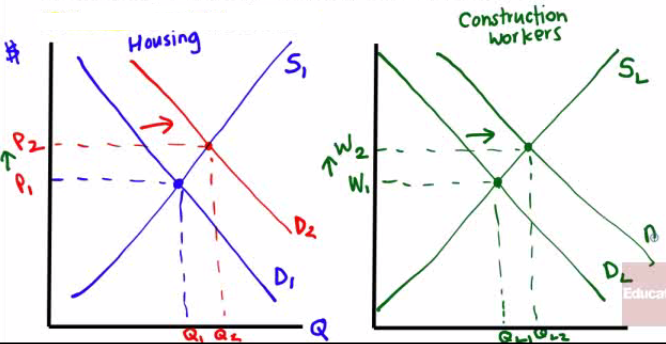 Housing
$
S₁
P₂
↑
P₁
D₂
D₁
Q₁ Q₂ Q
Construction
workers
S_L
W₂
↑
W₁
D
D_L
Q_L1 Q_L2
Educa